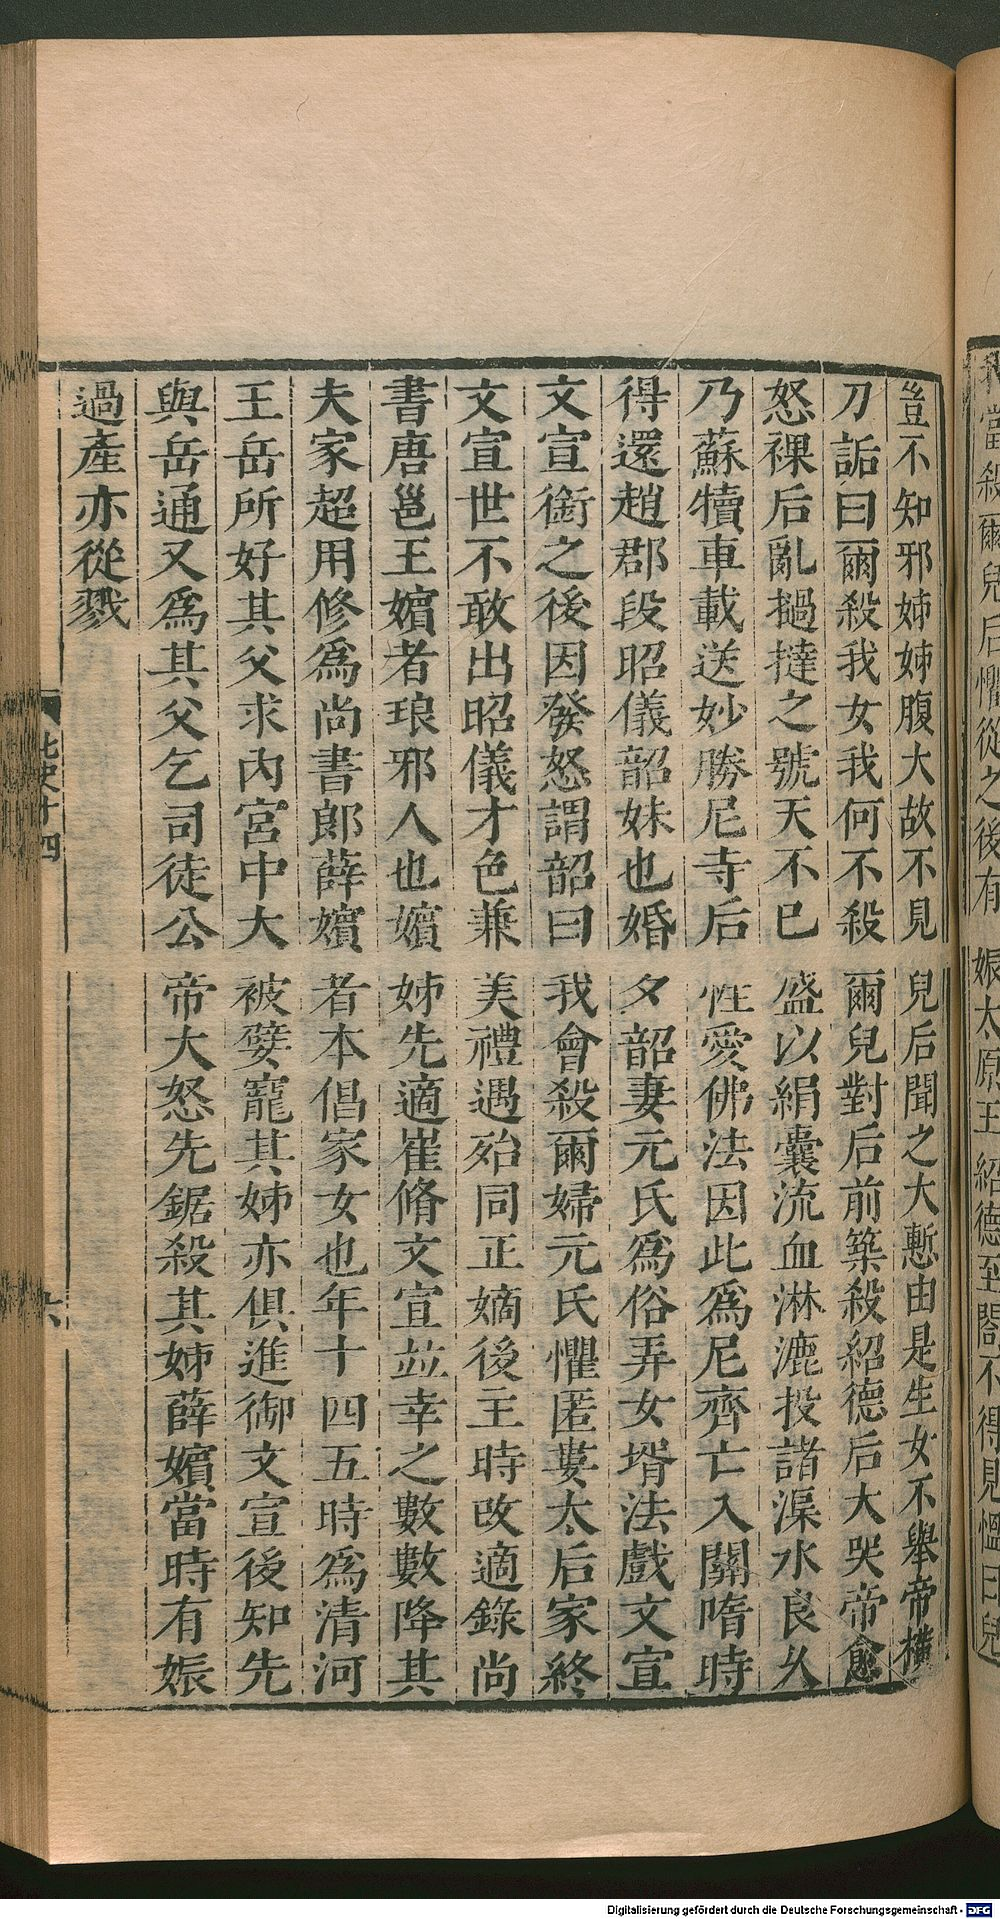 豈不知邪姊姊腹大故不見兒后聞之大慙由是生女不舉帝橫
刀詬曰爾殺我女我何不殺爾兒對后前築殺紹德后大哭帝愈
怒裸后亂撾撻之號天不已盛以絹囊流血淋漉投諸渠水良久
乃蘇犢車載送妙勝尼寺后性愛佛法因此爲尼齊亡入關隋時
得還趙郡段昭儀韶妹也婚夕韶妻元氏爲俗弄女壻法戲文宣
文宣銜之後因發怒謂韶曰我會殺爾婦元氏懼匿婁太后家終
文宣世不敢出昭儀才色兼美禮遇殆同正嫡後主時改適錄尚
書唐邕王嬪者琅邪人也嬪姊先適崔脩文宣並幸之數數降其
夫家超用修爲尚書郎薛嬪者本倡家女也年十四五時爲清河
王岳所好其父求內宮中大被嬖寵其姊亦俱進御文宣後知先
與岳通又爲其父乞司徒公帝大怒先鋸殺其姊薛嬪當時有娠
過產亦從戮
北史十四
六
當殺爾兒后懼從之後有娠太原王紹德至閤不得見慍曰兒
Digitalisierung gefördert durch die Deutsche Forschungsgemeinschaft - DFG